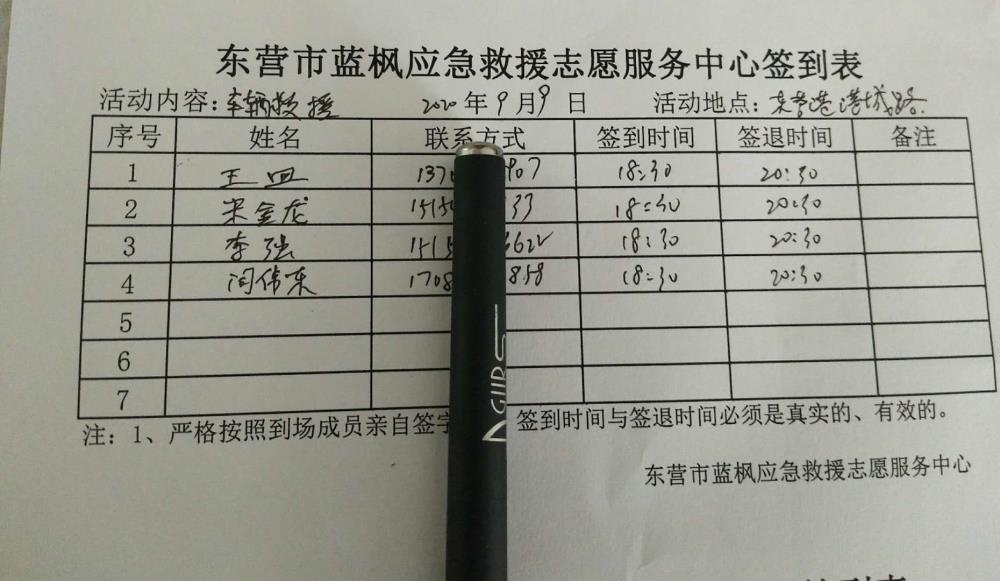 东营市蓝枫应急救援志愿服务中心签到表
活动内容：车辆救援 2020年9月9日 活动地点：东营港港城路
序号 姓名 联系方式 签到时间 签退时间 备注
1 王 1370 907 18:30 20:30
2 宋金龙 15150 33 18:30 20:30
3 李强 1515 662 18:30 20:30
4 闫伟东 1708 858 18:30 20:30
5
6
7
注：1、严格按照到场成员亲自签字 签到时间与签退时间必须是真实的、有效的。
东营市蓝枫应急救援志愿服务中心